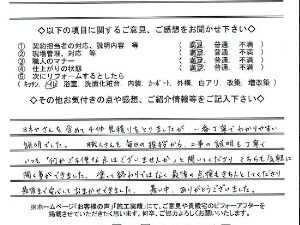 ◇以下の項目に関するご意見、ご感想をお聞かせ下さい◇
① 契約担当者の対応、説明内容 等 ( 満足 普通 不満 )
② 現場管理、対応 等 ( 満足 普通 不満 )
③ 職人のマナー ( 満足 普通 不満 )
④ 仕上がりの状態 ( 満足 普通 不満 )
⑤ 次にリフォームするとしたら
( キッチン、 浴室、洗面化粧台、内装、カーポート、外構、白アリ、改築、増改築 )
◇その他お気付きの点や感想、ご紹介情報等をご記入下さい◇
さんも含めて4件見積りをとりましたが 一番丁寧でわかりやすい
説明でした。 職人さんも毎日の挨拶から、工事の説明も丁寧で
いつも「何かご不便な点はございませんか」と聞いてくださり こちらも気軽に
聞く事ができました。 塗って終わりではなく最後の点検もきちんとしてくださり
最後まで安心しておまかせできました。 暑い中、ありがとうございました。
※ホームページ「お客様の声」「施工実績」にて、ご意見やご長殿宅のビフォーアフターを
掲載させていただきたく思います。何卒、ご協力よろしくお願いします。